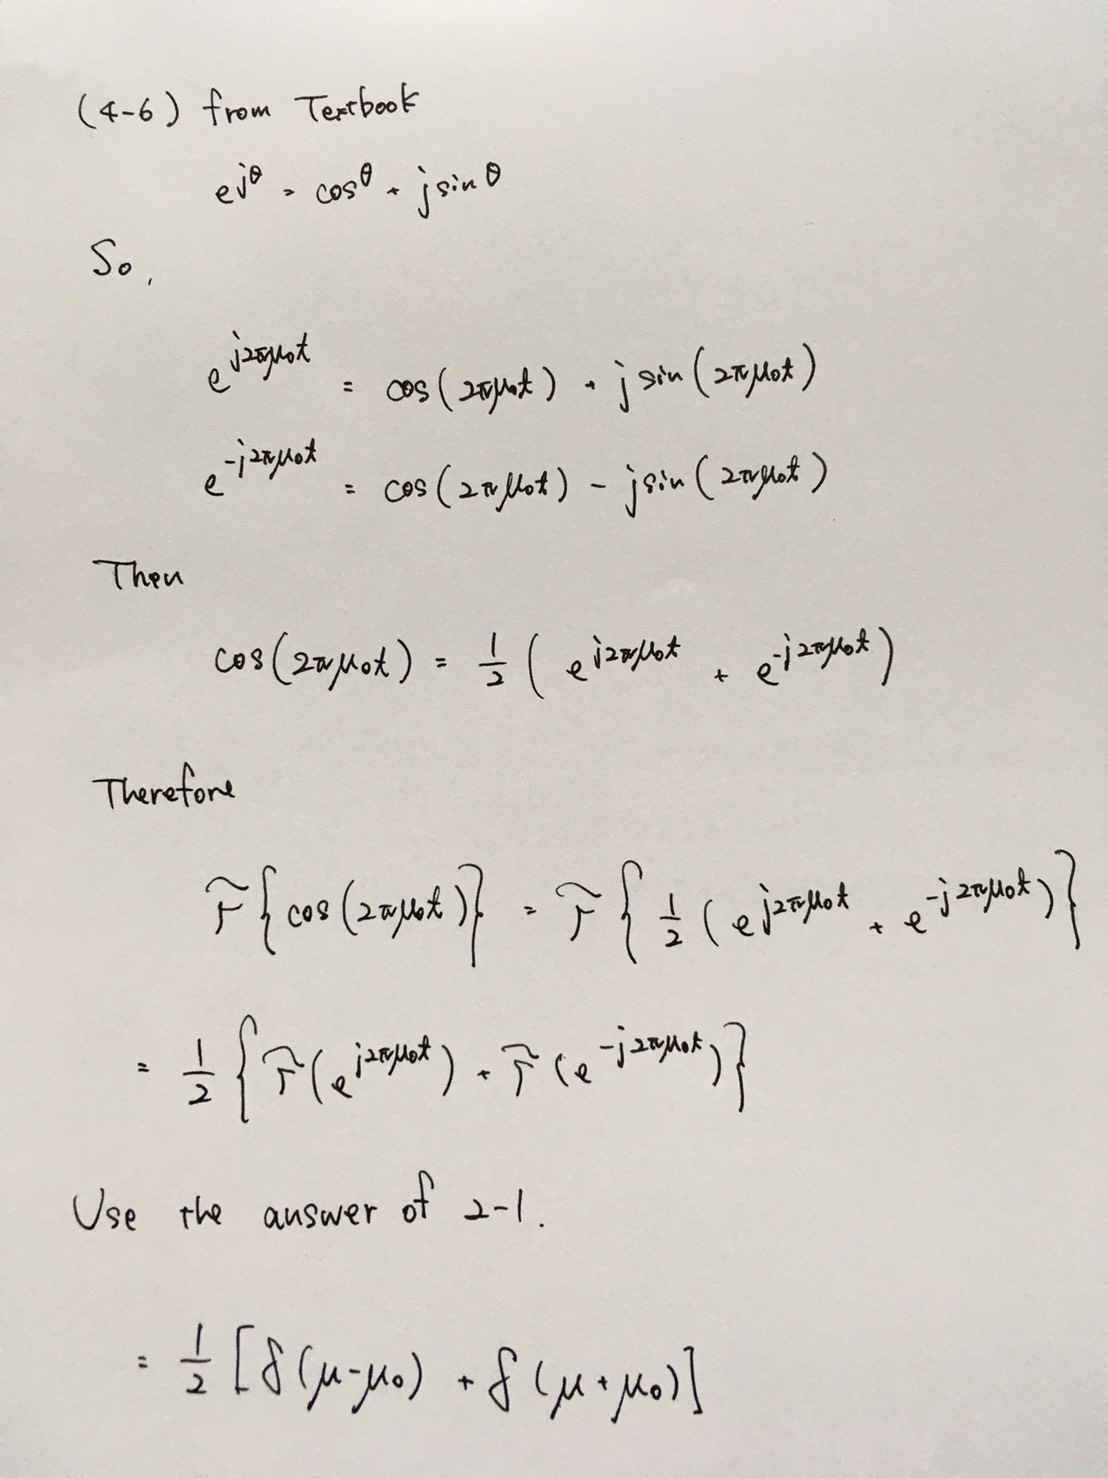 (4-6) from Textbook
e^{jθ} = cosθ + jsinθ
So,
e^{j2πμ₀t} = cos(2πμ₀t) + jsin(2πμ₀t)
e^{-j2πμ₀t} = cos(2πμ₀t) - jsin(2πμ₀t)
Then
cos(2πμ₀t) = 1/2 (e^{j2πμ₀t} + e^{-j2πμ₀t})
Therefore
ℱ{cos(2πμ₀t)} = ℱ{1/2 (e^{j2πμ₀t} + e^{-j2πμ₀t})}
= 1/2 {ℱ(e^{j2πμ₀t}) + ℱ(e^{-j2πμ₀t})}
Use the answer of 2-1.
= 1/2 [δ(μ-μ₀) + δ(μ+μ₀)]